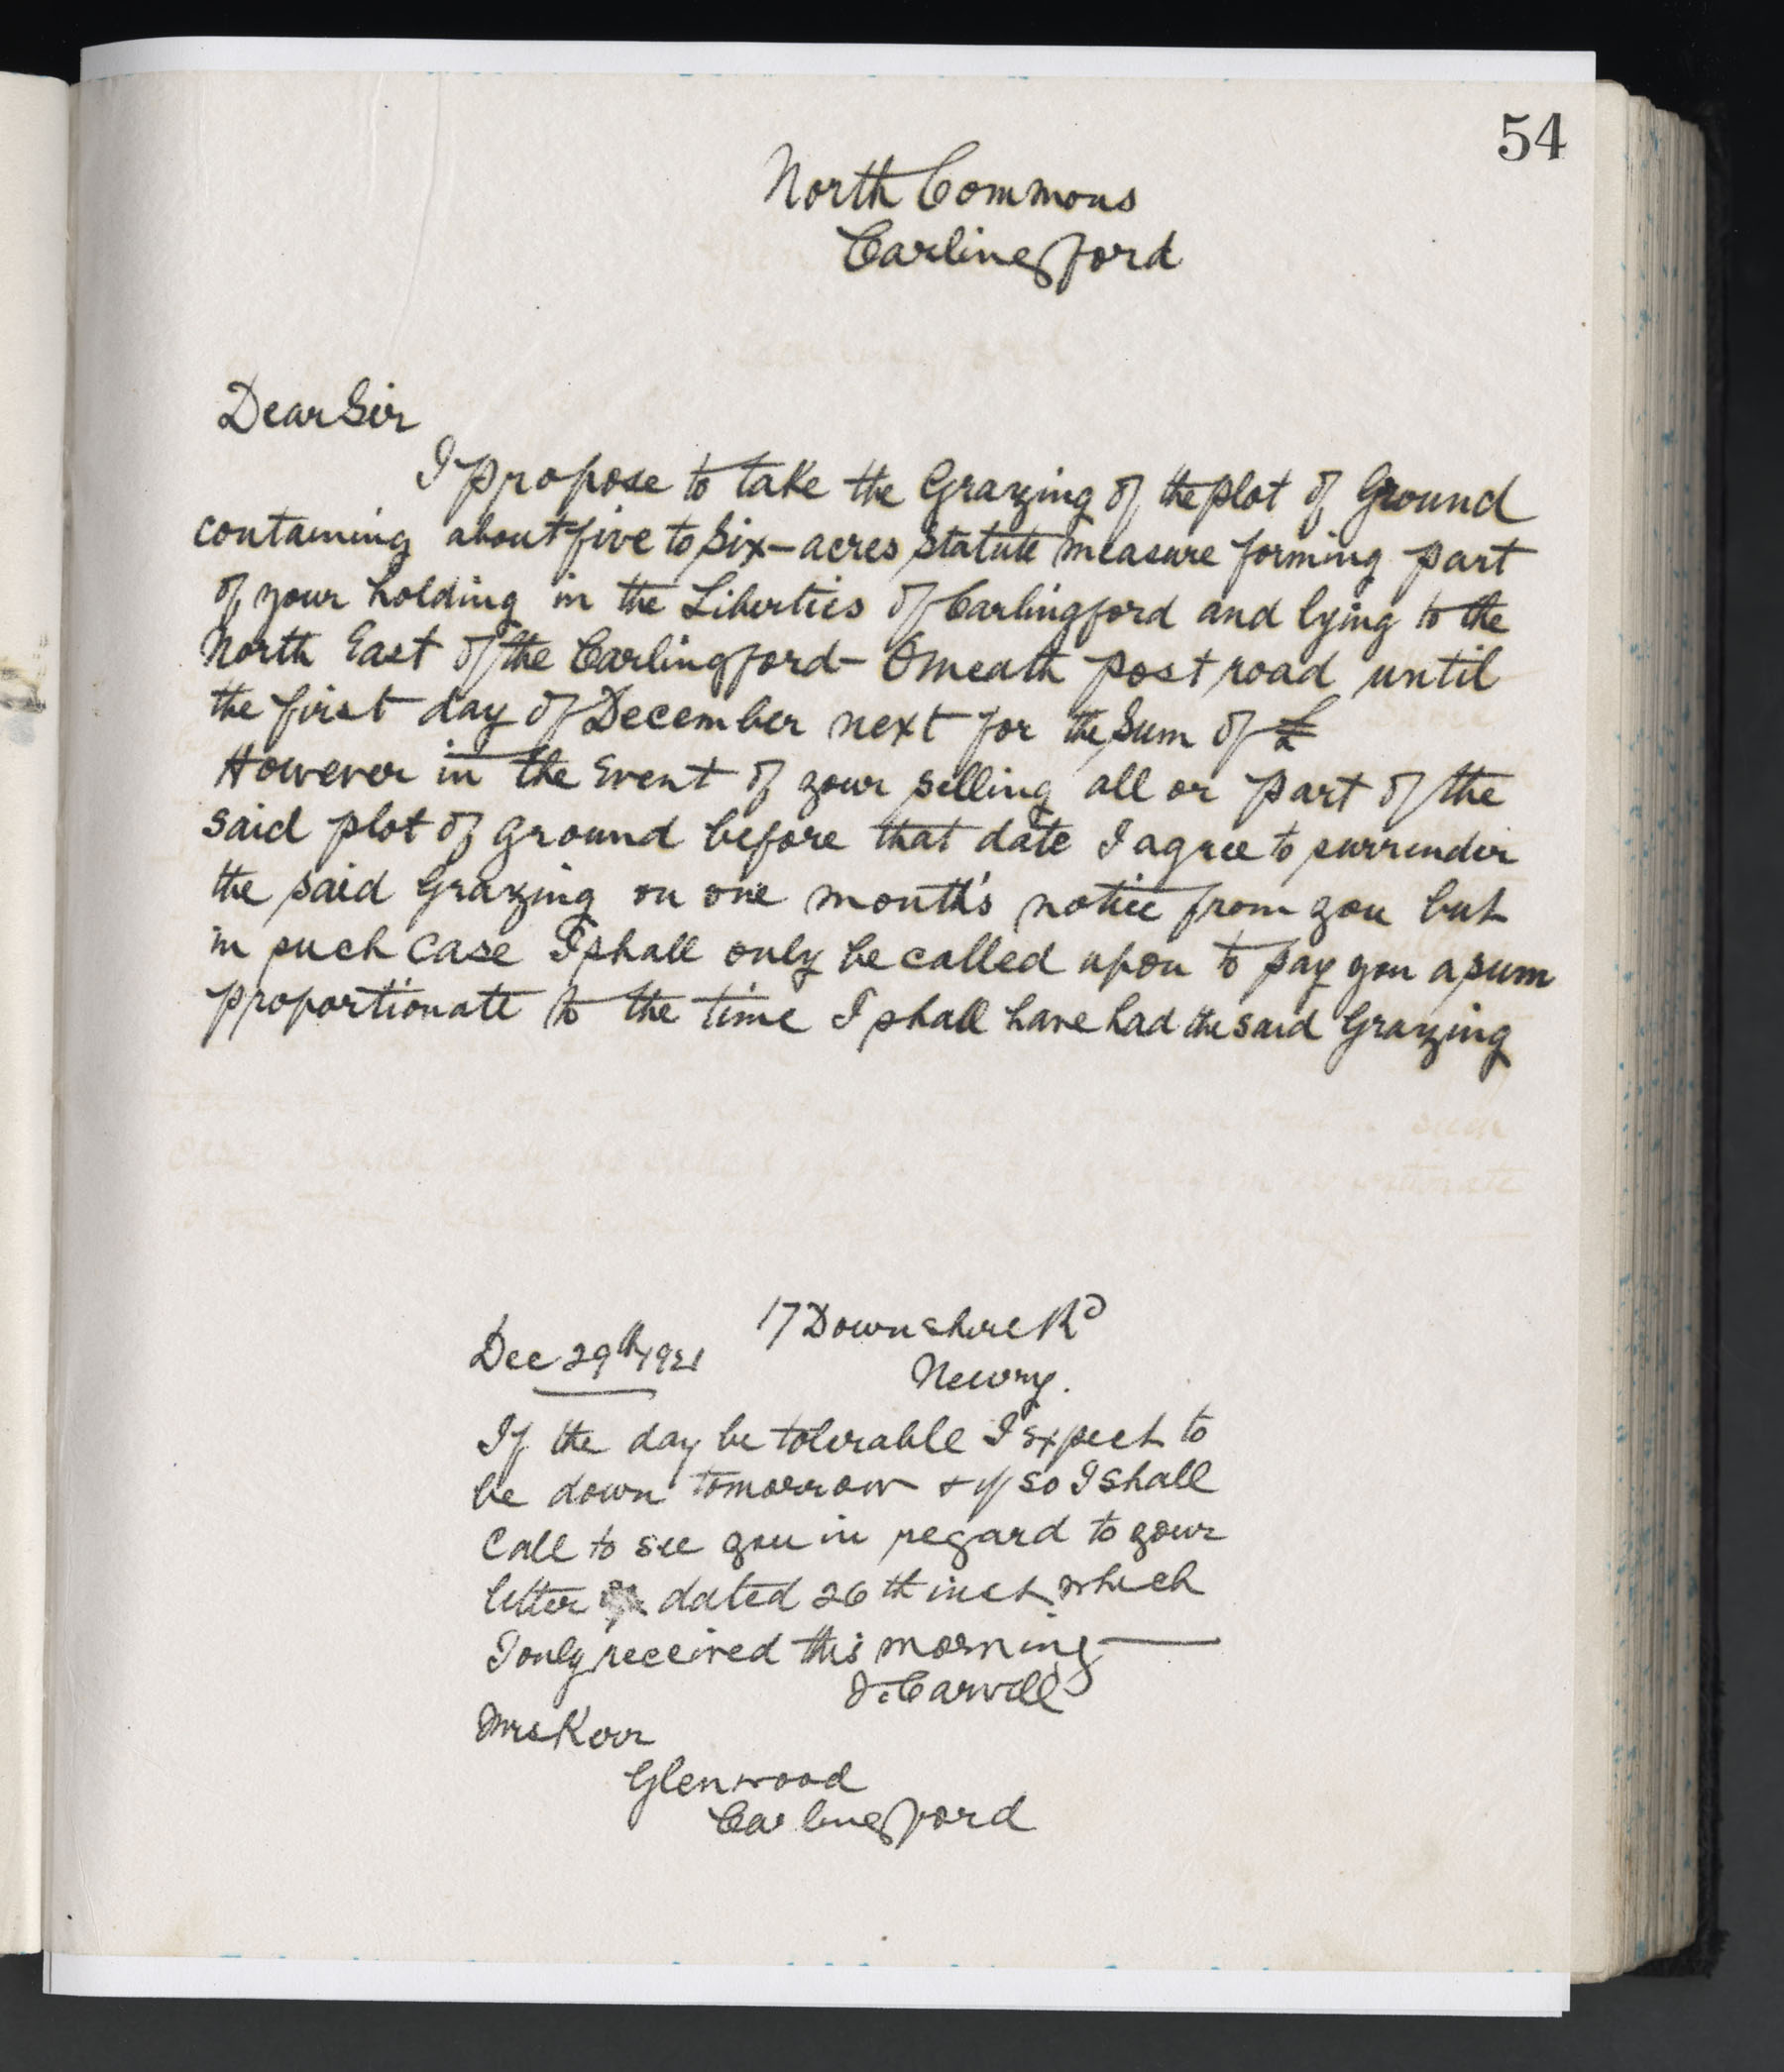 54
North Commons
Carlingford
Dear Sir
I propose to take the Grazing of the plot of Ground
containing about five to six-acres statute measure forming part
of your holding in the Liberties of Carlingford and lying to the
North East of the Carlingford-Omeath post road until
the first day of December next for the Sum of £
However in the event of your selling all or part of the
said plot of ground before that date I agree to surrender
the said Grazing on one month's notice from you but
in such case I shall only be called upon to pay you a sum
proportionate to the time I shall have had the said Grazing
17 Downshire Rd
Dec 29th 1921
Newry.
If the day be tolerable I expect to
be down tomorrow + if so I shall
Call to see you in regard to your
letter dated 26th inst which
I only received this morning —
J. Carvill
Mrs Kerr
Glenwood
Carlingford